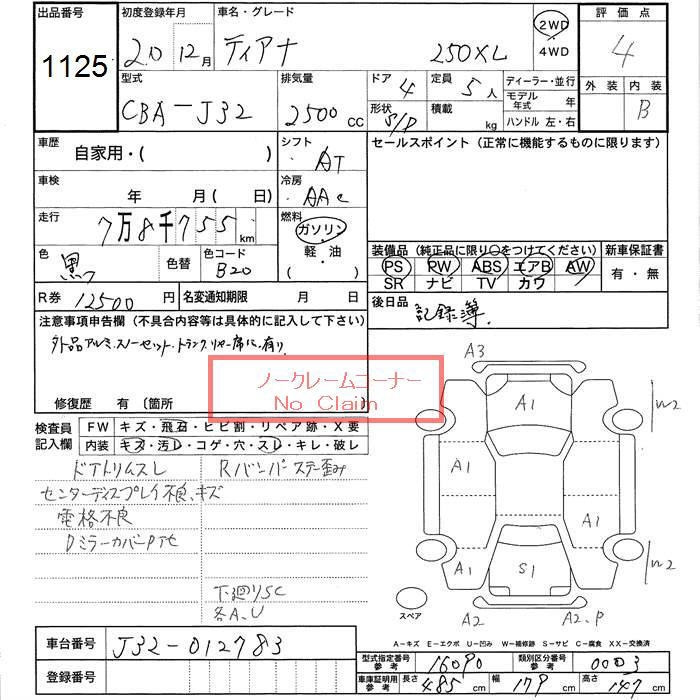 出品番号 初度登録年月 車名・グレード 評価点
1125 20 12月 ティアナ 250XL 2WD 4WD 4
型式 排気量 ドア 4 定員 5人 ディーラー・並行 外装 内装
CBA-J32 2500 cc 形状 S/D 積載 kg モデル年式 年 B
ハンドル 左・右
車歴 自家用・( ) シフト AT セールスポイント（正常に機能するものに限ります）
車検 年 月 (日) 冷房 AAC
走行 7万8千755 km 燃料 ガソリン 軽・油 ( )
色 黒 色替 色コード B20
装備品（純正品に限り○をつけてください） 新車保証書
PS PW ABS エアB AW 有・無
SR ナビ TV カワ
R券 12500円 名変通知期限 月 日 後日品 記録簿
注意事項申告欄（不具合内容等は具体的に記入して下さい）
外品アルミ、スノーセット、トランク、リヤ席に有り
ノークレームコーナー
No Claim
修復歴 有 〔箇所 〕
検査員記入欄 FW キズ・飛石・ヒビ割・リペア跡・X要
内装 キズ・汚レ・コゲ・穴・スレ・キレ・破レ
ドアトリムスレ Rバンパーステー歪み
センターディスプレイ不良、キズ
電格不良
Dミラーカバー
下廻りSC
各A、U
A3
A1
W2
A1
A1
A1
S1
W2
スペア
A2
A2、P
車台番号 J32-012783
登録番号
A-キズ E-エクボ U-凹み W-補修跡 S-サビ C-腐食 XX-交換済
型式指定番号 参考 16090 類別区分番号 参考 0003
車庫証明用 参考 長さ 485 cm 幅 179 cm 高さ 147 cm